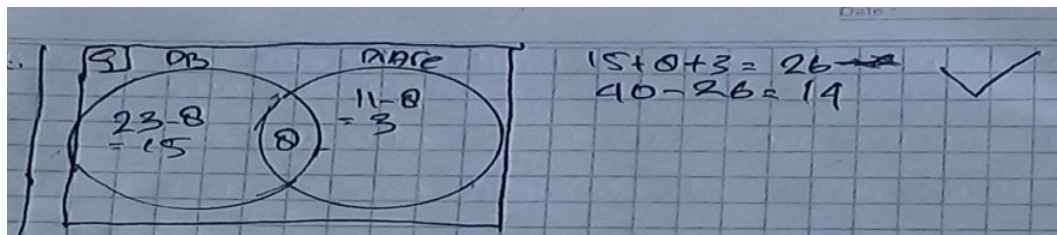 Date
S DB DIARE
23-8 8 11-8
= 15 = 3
15+8+3 = 26
40-26 = 14